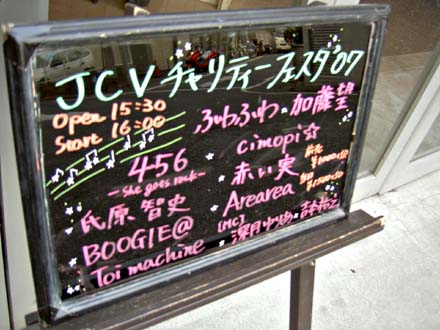 JCVチャリティーフェスタ'07
Open 15:30
Start 16:00
456
-she goes rock-
氏原 智史
BOOGIE@
Toi machine
ふわふわ 加藤望
cimopi☆
赤い実
Arearea
[MC]
前売 ¥1000
当日 ¥1500